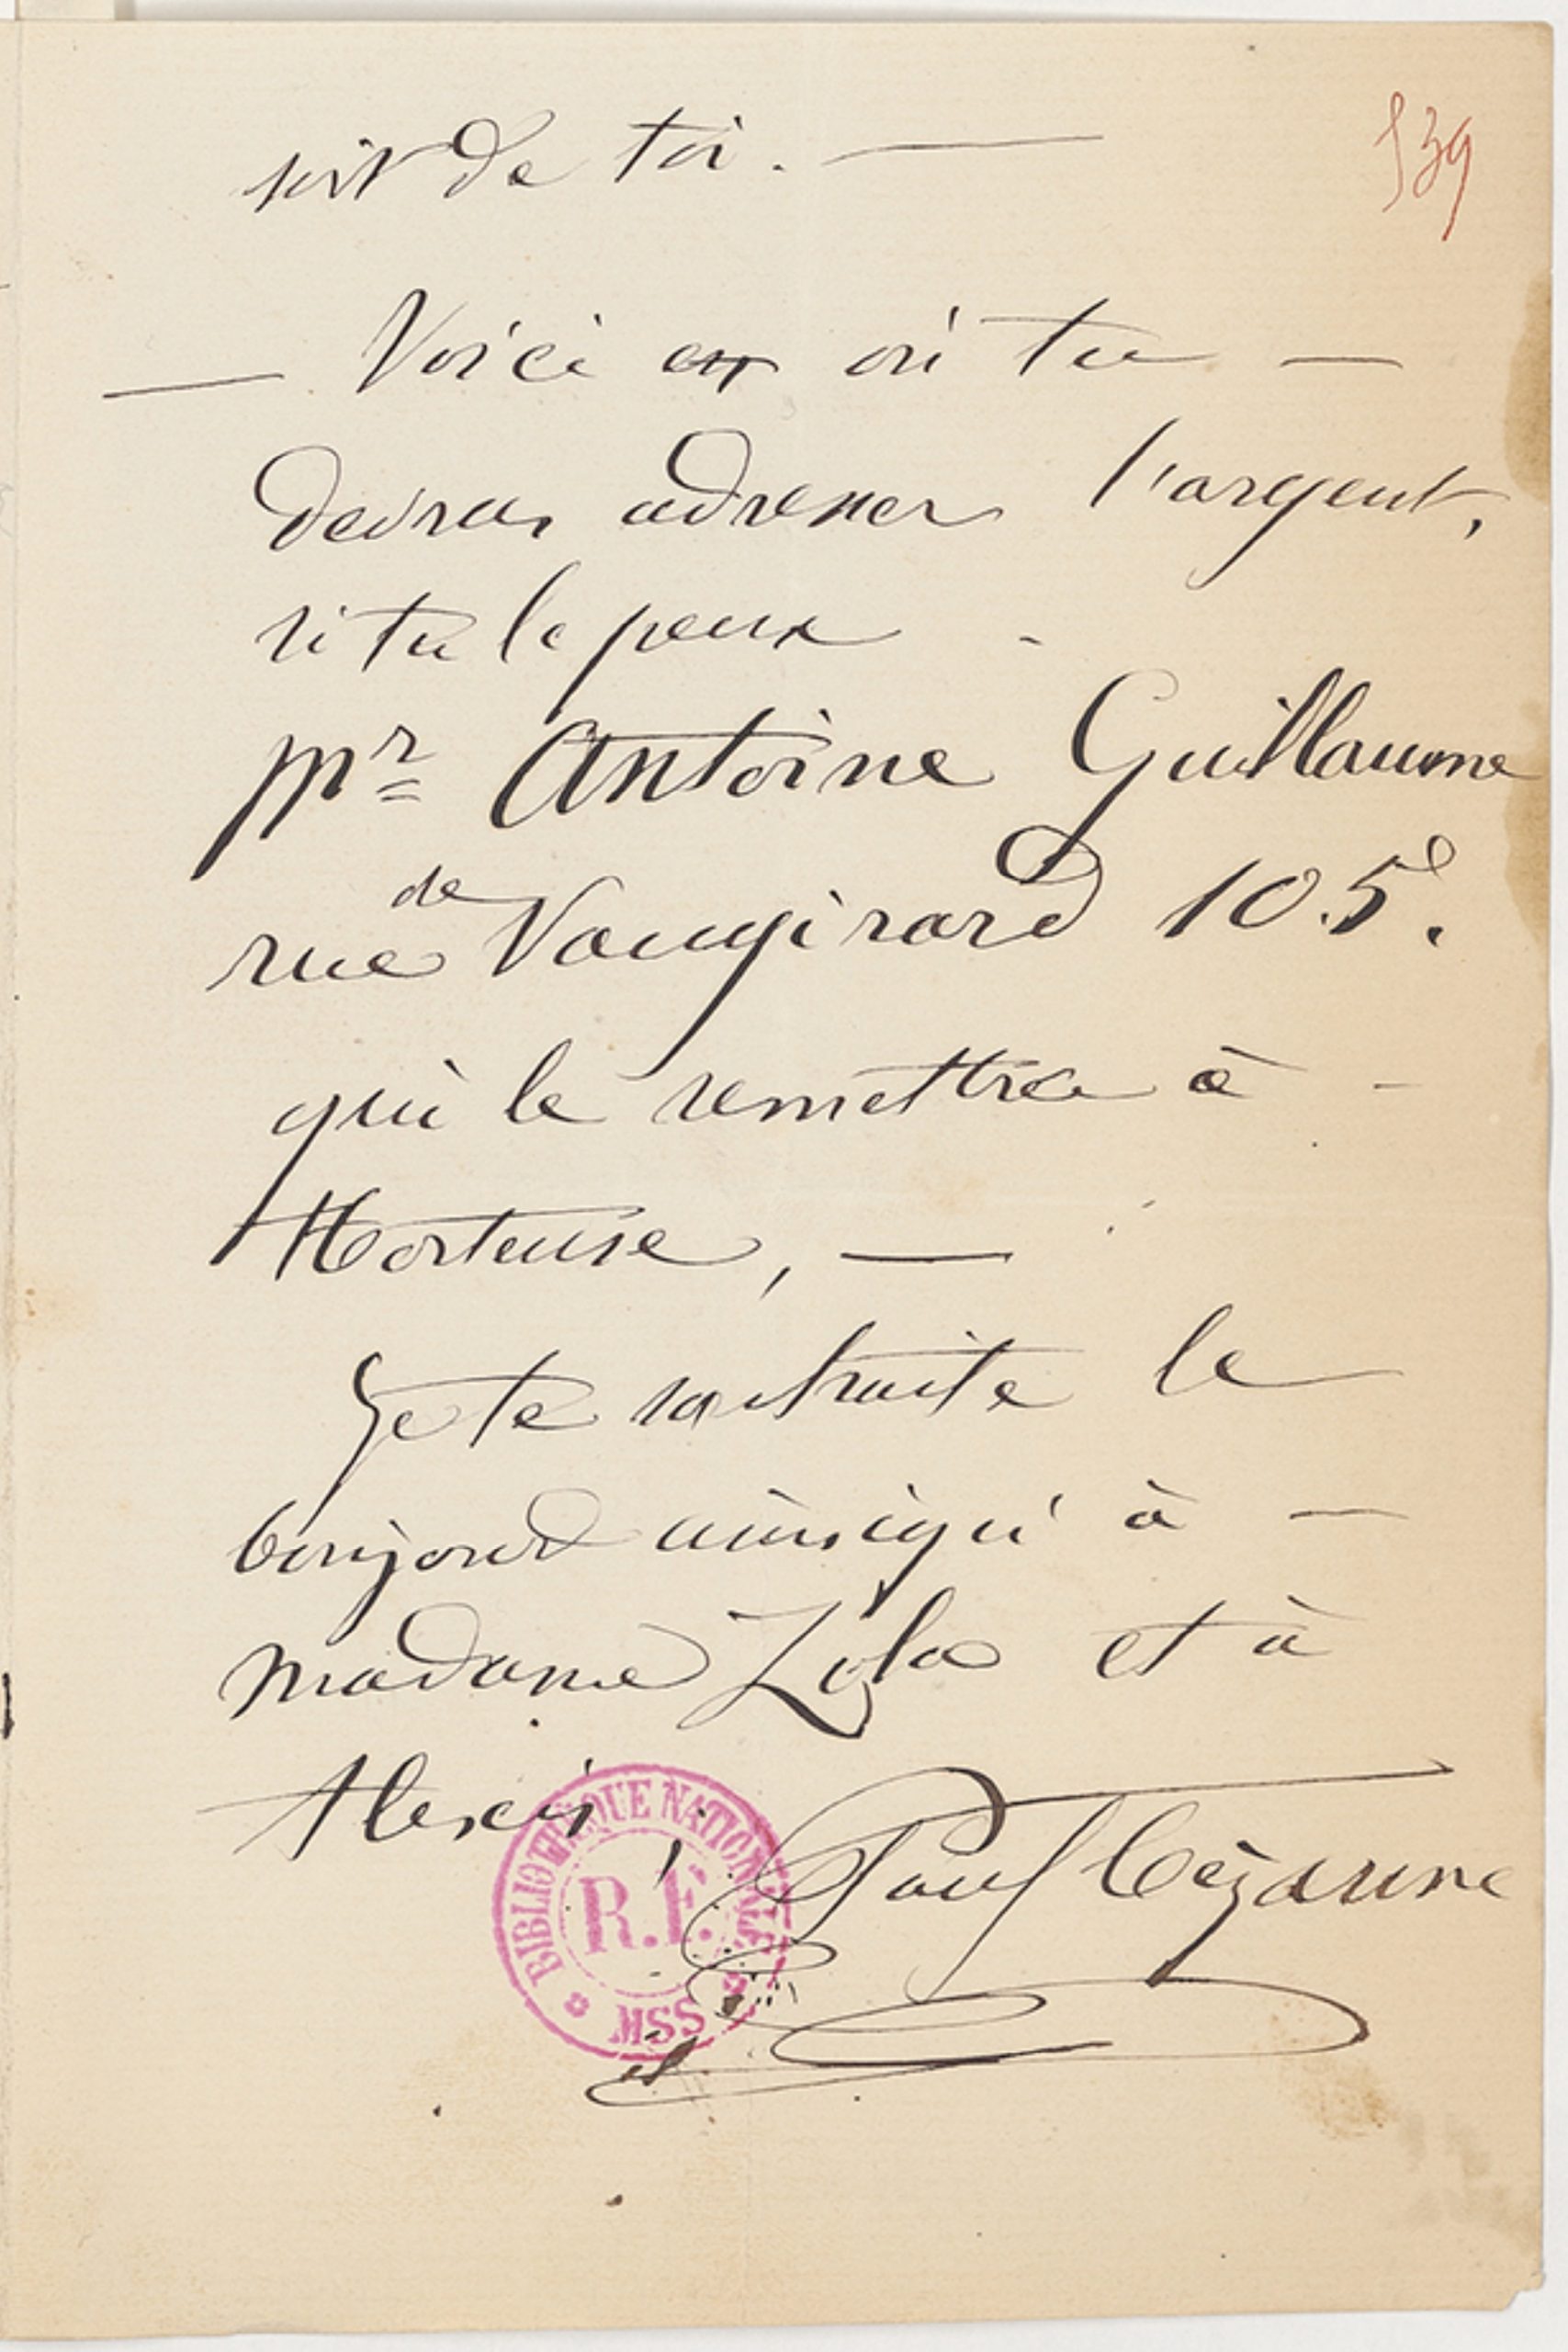 soit de toi. —
539
— Voici où tu —
devras adresser l'argent,
si tu le peux -
Mr Antoine Guillaume
rue de Vaugirard 105.
qui le remettra à -
Hortense, —
Je te souhaite le
bonjour ainsiqu'à —
madame Zola et à
Alexis,
Paul Cézanne
BIBLIOTHÈQUE NATIONALE
R.F.
MSS